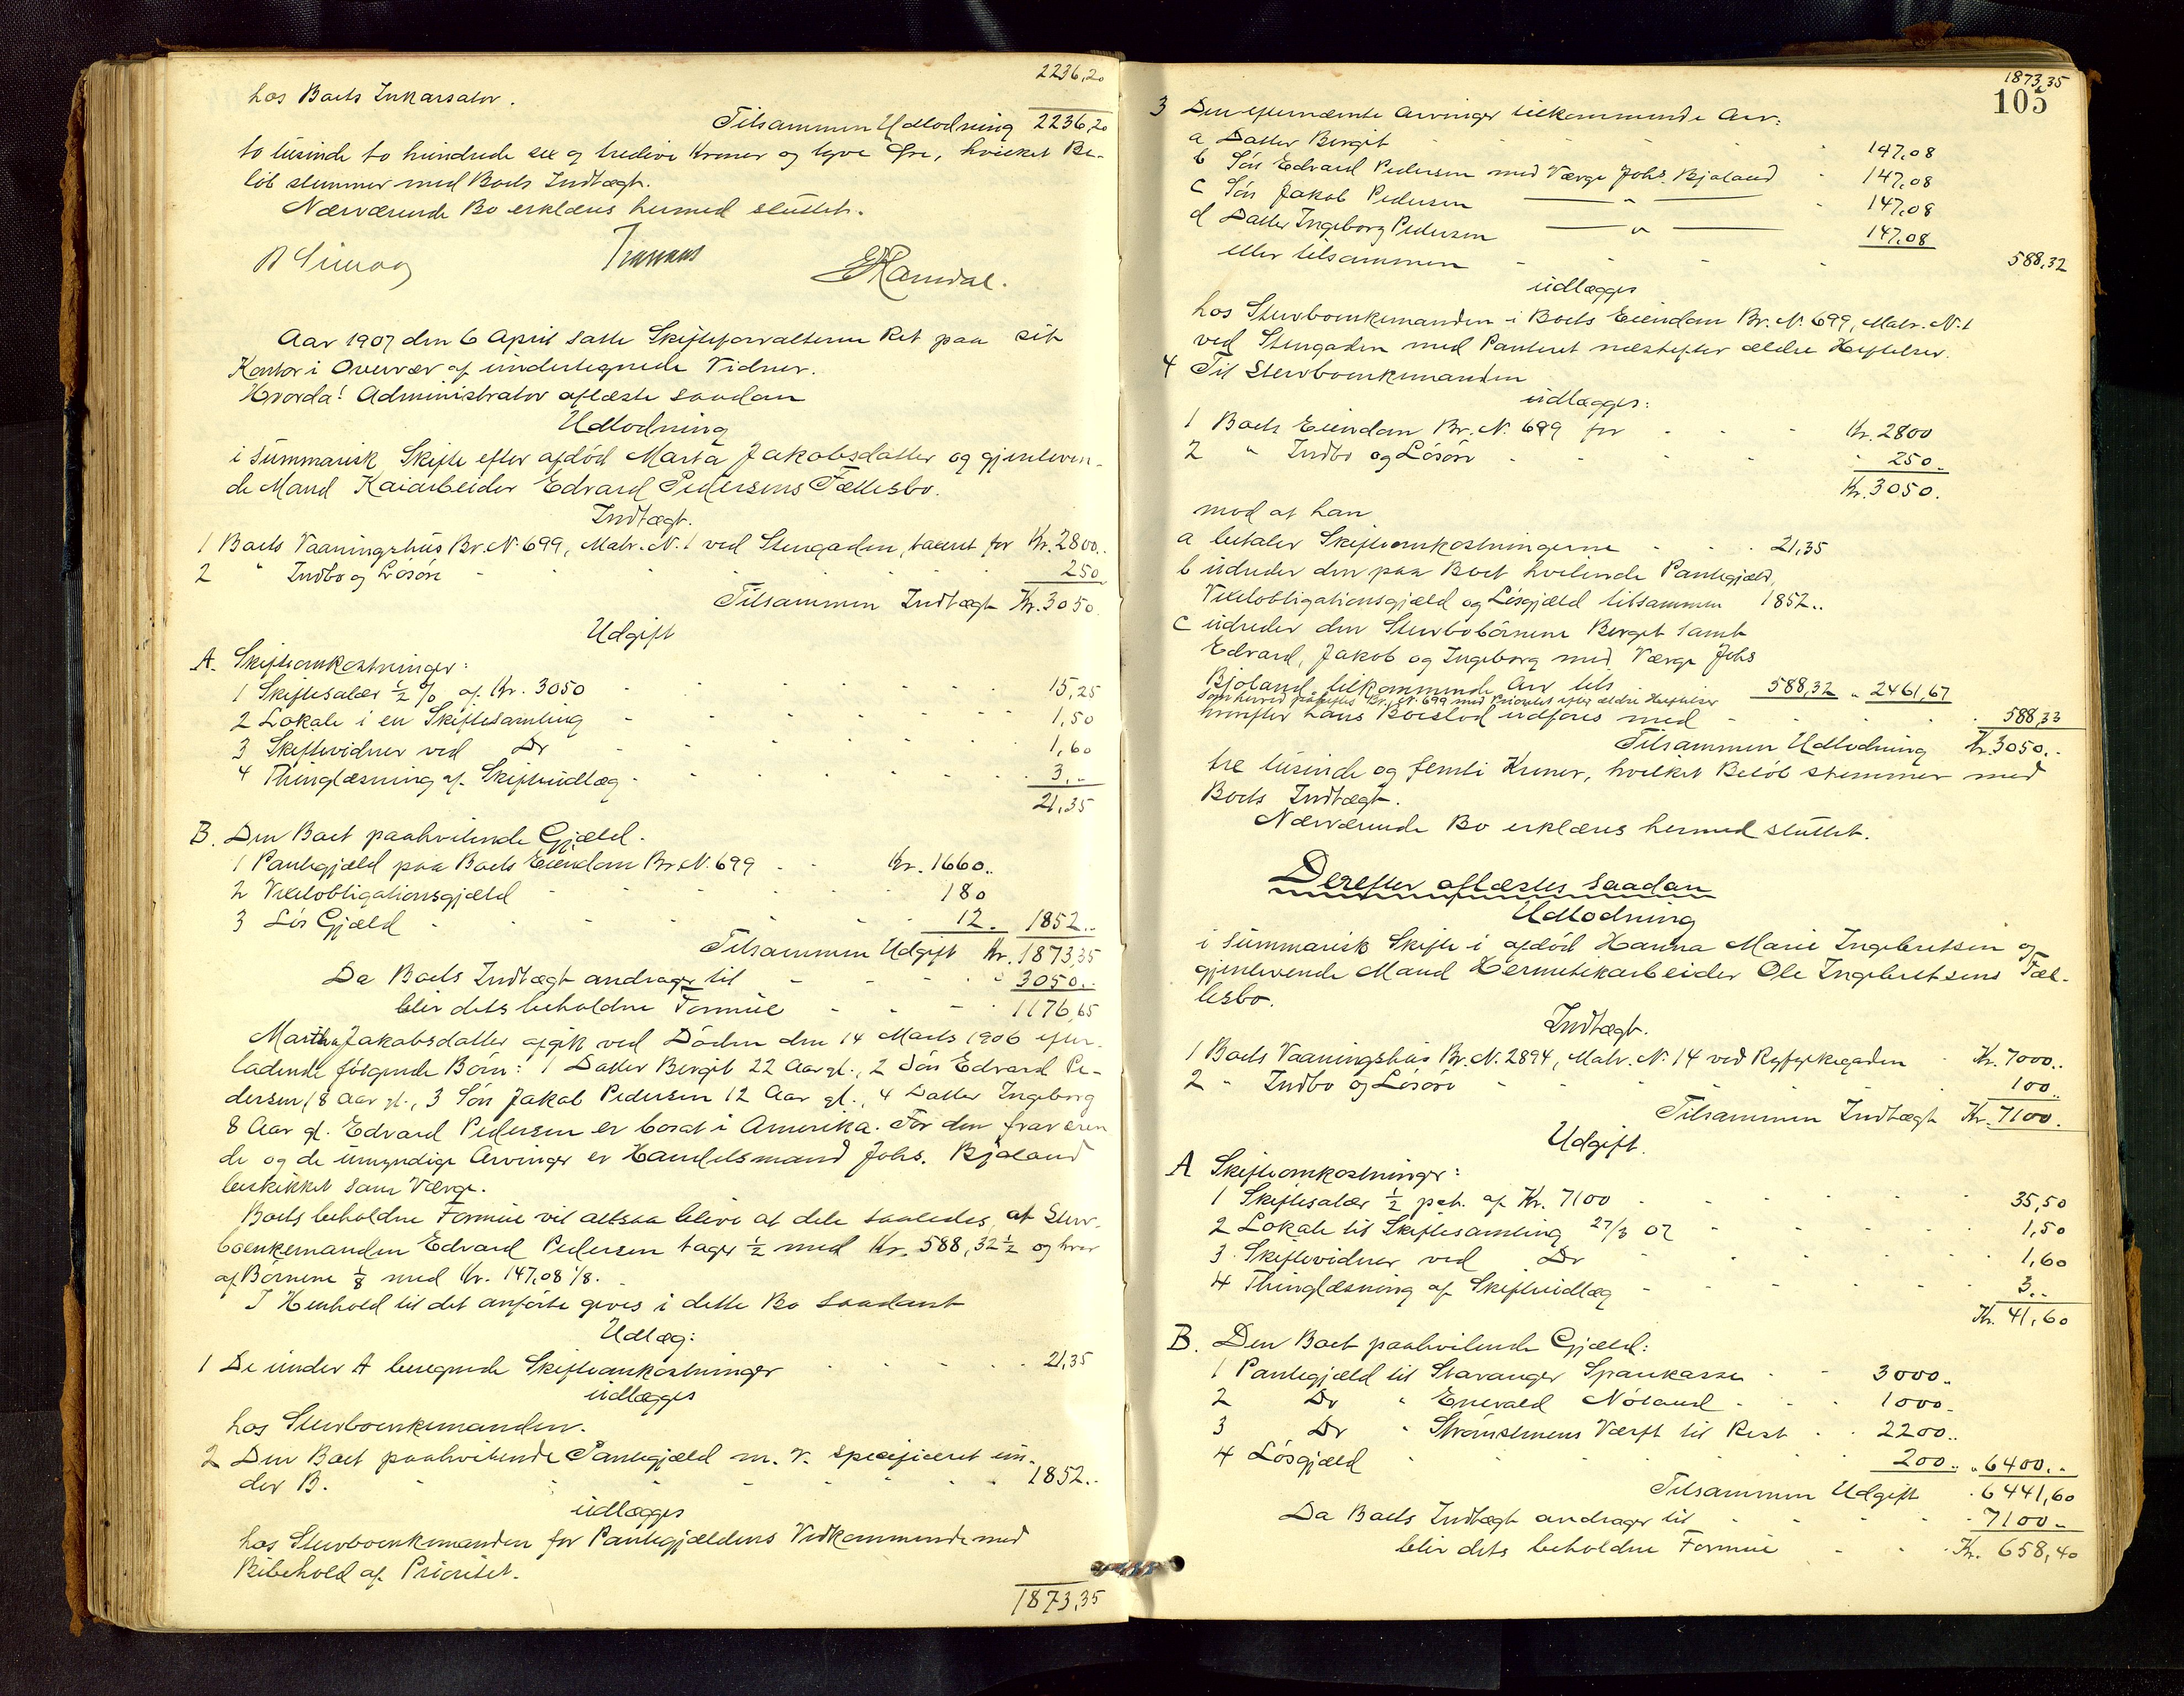 2236,20
hos Boets Inkassator.
Tilsammen Udlodning 2236,20
to tusinde to hundrede sex og tredive Kroner og tyve Øre, hvilket Be-
løb stemmer med Boets Indtægt.
Nærværende Bo erklæres hermed sluttet.
Aar 1907 den 6 April satte Skifteforvalteren Ret paa sit
Kontor i Overvær af undertegnede Vidner.
Hvorda! Administrator oplæste saadan
Udlodning
i summarisk Skifte efter afdød Marta Jakobsdatter og gjenleven-
de Mand Kaiarbeider Edvard Pedersens Fællesbo.
Indtægt.
1 Boets Vaaningshus Br. N. 699, Matr. N. 1 ved Stengaden, taxeret for Kr. 2800..
2 " Indbo og Løsøre 250
Tilsammen Indtægt Kr. 3050.
Udgift
A. Skifteomkostninger:
1 Skiftesalær ½ % af Kr. 3050 15,25
2 Lokale i en Skiftesamling 1,50
3 Skiftevidner ved Do 1,60
4 Thinglæsning af Skifteudlæg 3,-
21,35
B. Den Boet paahvilende Gjæld.
1 Pantegjæld paa Boets Eiendom Br. N. 699 Kr. 1660..
2 Vexelobligationsgjæld 180
3 Løs Gjæld 12. 1852..
Tilsammen Udgift Kr. 1873,35
Da Boets Indtægt andrager til 3050..
blir dets beholdne Formue 1176,65
Martha Jakobsdatter afgik ved Døden den 14 Marts 1906 efter-
ladende følgende Børn: 1 Datter Bergit 22 Aar gl., 2 Søn Edvard Pe-
dersen 18 Aar gl., 3 Søn Jakob Pedersen 12 Aar gl., 4 Datter Ingeborg
8 Aar gl. Edvard Pedersen er bosat i Amerika. For den fraværen
de og de umyndige Arvinger er Handelsmand Johs. Bjoland
beskikket som Værge.
Boets beholdne Formue vil altsaa blive at dele saaledes, at Sterv-
boenkemanden Edvard Pedersen tager ½ med Kr. 588,32½ og hver
af Børnene ⅛ med Kr. 147,08 1/8.
I Henhold til det anførte gives i dette Bo saadant
Udlæg:
1 De under A beregnede Skifteomkostninger 21,35
udlægges
hos Stervboenkemanden.
2 Den Boet paahvilende Pantegjæld m. v. specificeret un-
der B. 1852..
udlægges
hos Stervboenkemanden for Pantegjældens Vedkommende med
Bibehold af Prioritet.
1873,35
1873,35
105
3 Den efternævnte Arvinger tilkommende Arv:
a Datter Bergit 147,08
b Søn Edvard Pedersen med Værge Johs. Bjoland 147,08
c Søn Jakob Pedersen — " — 147,08
d Datter Ingeborg Pedersen — " — 147,08
eller tilsammen 588,32
udlægges
hos Stervboenkemanden i Boets Eiendom Br. N. 699, Matr. N. 1
ved Stengaden med Panteret næstefter ældre Heftelser.
4 Til Stervboenkemanden
udlægges:
1 Boets Eiendom Br. N. 699 for Kr. 2800
2 " Indbo og Løsøre " 250.
Kr. 3050.
mod at han
a betaler Skifteomkostningerne 21,35
b udreder den paa Boet hvilende Pantegjæld,
Vexelobligationsgjæld og Løsgjæld tilsammen 1852..
c udreder den Stervbobørnene Bergit samt
Edvard, Jakob og Ingeborg med Værge Johs
Bjoland tilkommende Arv tils 588,32 " 2461,67
som herved pantes Br. N. 699 med Prioritet efter ældre Heftelser
hvorefter hans Boeslod udføres med 588,33
Tilsammen Udlodning Kr. 3050.-
tre tusinde og femti Kroner, hvilket Beløb stemmer med
Boets Indtægt.
Nærværende Bo erklæres hermed sluttet.
Derefter oplæstes saadan
Udlodning
i summarisk Skifte i afdød Hanna Marie Ingebretsen og
gjenlevende Mand Hermetikarbeider Ole Ingebretsens Fæl-
lesbo.
Indtægt.
1 Boets Vaaningshus Br. N. 2894, Matr. N. 14 ved Ryfylkegaden Kr. 7000..
2 " Indbo og Løsøre 100..
Tilsammen Indtægt Kr. 7100.
Udgift.
A Skifteomkostninger:
1 Skiftesalær ½ pct. af Kr. 7100 35,50
2 Lokale til Skiftesamling 27/3 07 1,50
3 Skiftevidner ved Do 1,60
4 Thinglæsning af Skifteudlæg 3..
Kr. 41,60
B. Den Boet paahvilende Gjæld:
1 Pantegjæld til Stavanger Sparekasse 3000..
2 Do " Enevald Nøland 1000-
3 Do " Strømstenens Værft til Rest 2200..
4 Løsgjæld 200.. " 6400.-
Tilsammen Udgift 6441,60
Da Boets Indtægt andrager til 7100-
blir dets beholdne Formue Kr. 658,40